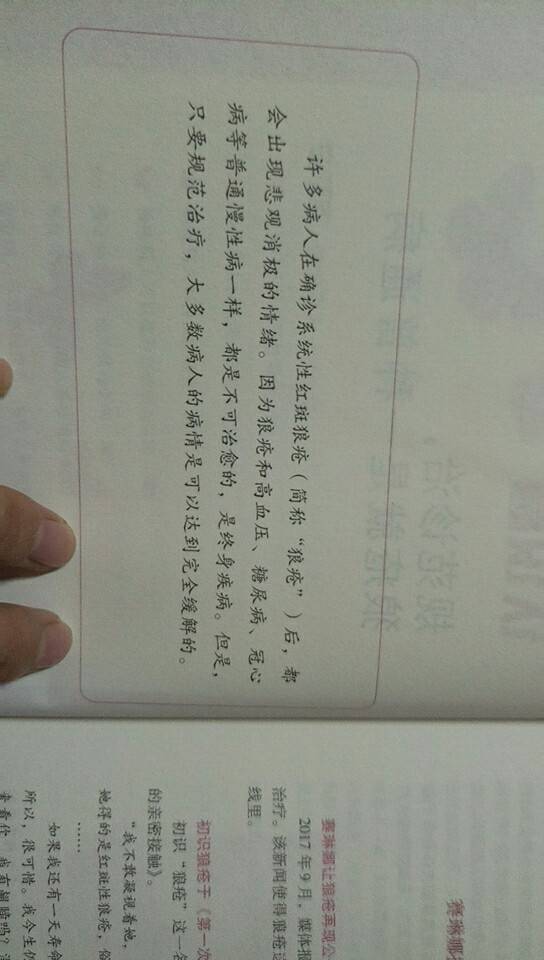 许多病人在确诊系统性红斑狼疮（简称“狼疮”）后，都
会出现悲观消极的情绪。因为狼疮和高血压、糖尿病、冠心
病等普通慢性病一样，都是不可治愈的，是终身疾病。但是，
只要规范治疗，大多数病人的病情是可以达到完全缓解的。
赛琳娜
赛琳娜让狼疮再现公
2017年9月，媒体报
治疗。该新闻使得狼疮这
线里。
初识狼疮于《第一次
初识“狼疮”这一名
的亲密接触》。
“我不敢凝视着她，
她得的是红斑性狼疮，俗
……
如果我还有一天寿命
所以，很可惜。我今生仍